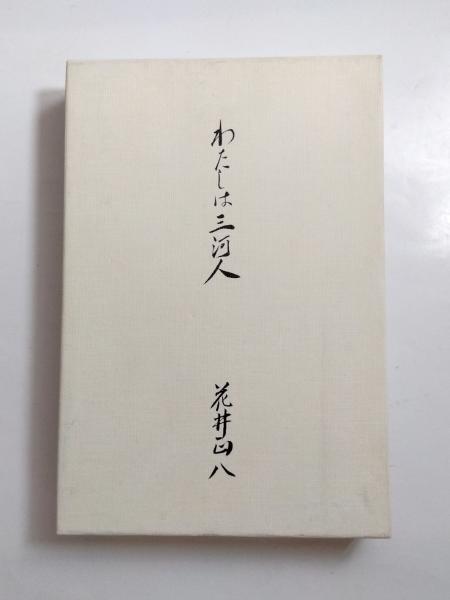 わたしは三河人
花井正八